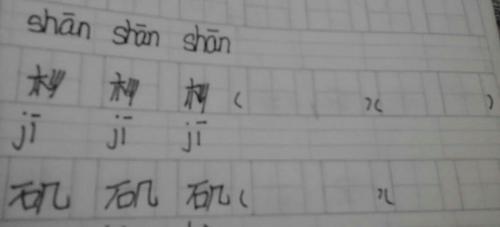 shān shān shān
杉 杉 杉 ( )( )
jī jī jī
矶 矶 矶 ( )(